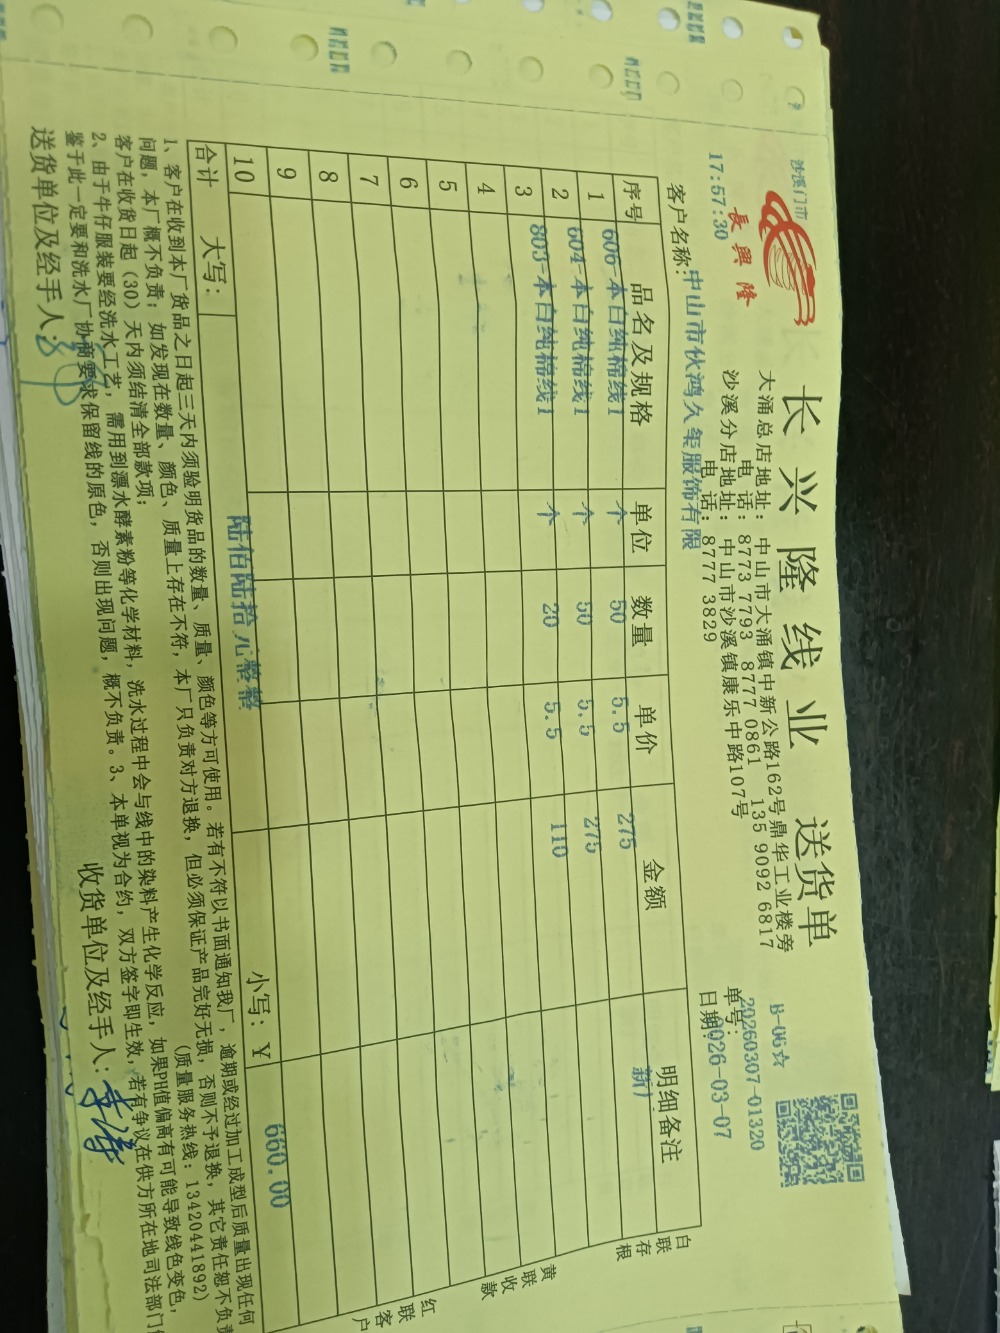 长兴隆线业 送货单
長興隆
沙溪门市
17:57:30
大涌总店地址: 中山市大涌镇中新公路162号鼎华工业楼旁
电 话: 8773 7793 8777 0861 135 9092 6817
沙溪分店地址: 中山市沙溪镇康乐中路107号
电 话: 8777 3829
B-06☆
单号: 20260307-01320
日期: 2026-03-07
客户名称: 中山市伙鸿久玺服饰有限
序号 品名及规格 单位 数量 单价 金额 明细备注
1 606-本白纯棉线1 个 50 5.5 275 新)
2 604-本白纯棉线1 个 50 5.5 275
3 803-本白纯棉线1 个 20 5.5 110
4
5
6
7
8
9
10
合计 大写: 陆佰陆拾元整整 小写: ¥ 660.00
白联存根
黄联收款
红联客户
1、客户在收到本厂货品之日起三天内须验明货品的数量、质量、颜色等方可使用。若有不符以书面通知我厂,逾期或经过加工成型后质量出现任何
问题,本厂概不负责;如发现在数量、颜色、质量上存在不符,本厂只负责对方退换,但必须保证产品完好无损,否则不予退换,其它责任恕不负责
客户在收货日起(30)天内须结清全部款项; (质量服务热线:13420441892)
2、由于牛仔服装要经洗水工艺,需用到漂水酵素粉等化学材料,洗水过程中会与线中的染料产生化学反应,如果PH值偏高有可能导致线色变色,
鉴于此一定要和洗水厂协商要求保留线的原色,否则出现问题,概不负责。3、本单视为合约,双方签字即生效,若有争议在供方所在地司法部门
送货单位及经手人: 收货单位及经手人: